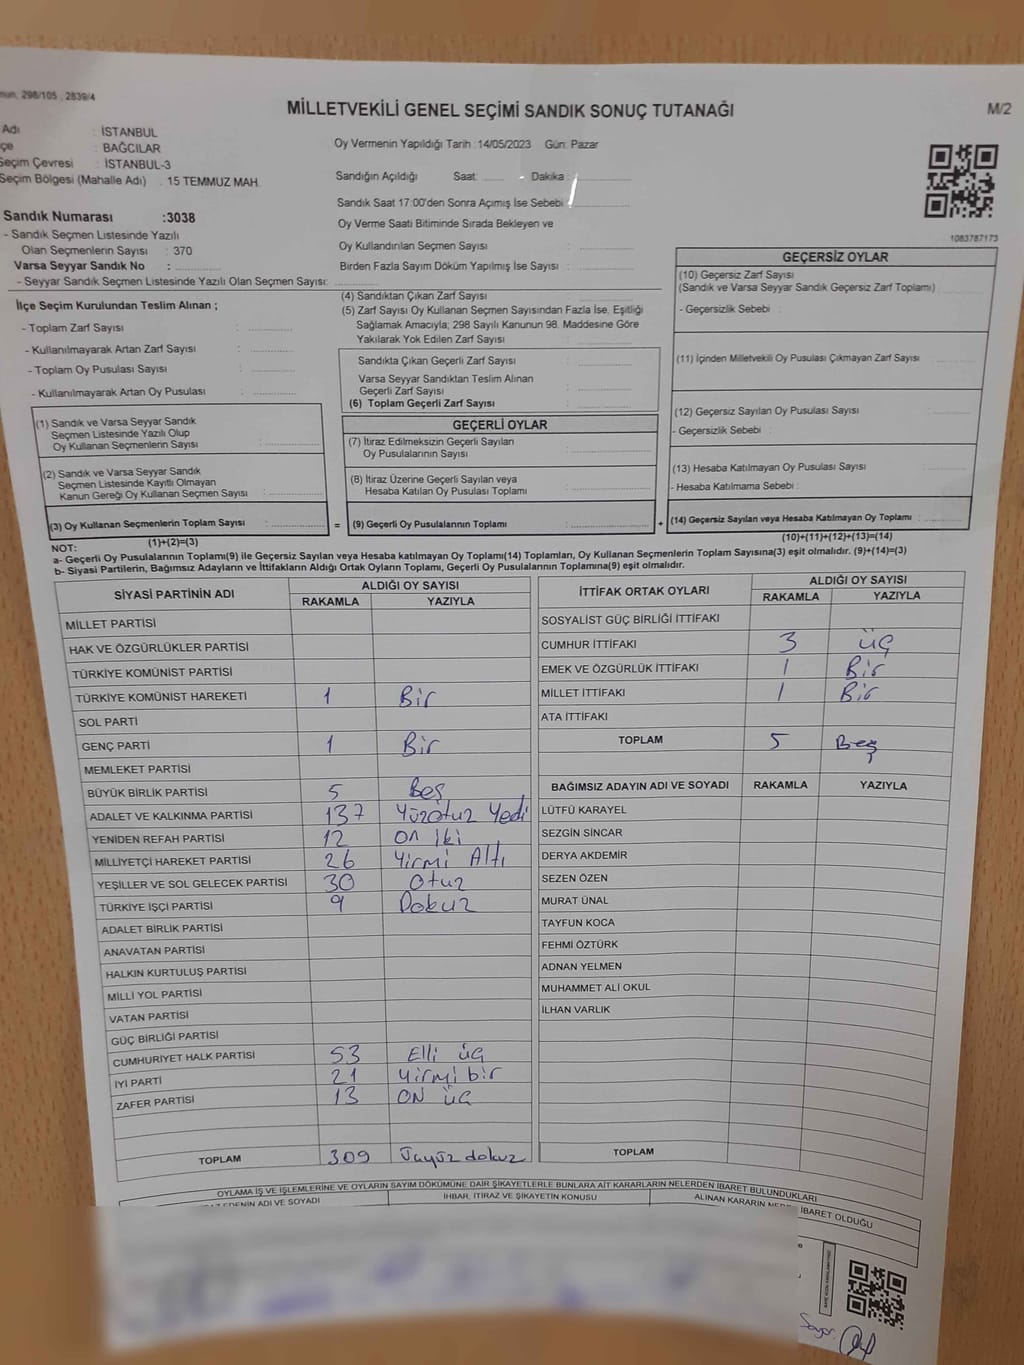 298/105 , 2839/4
MİLLETVEKİLİ GENEL SEÇİMİ SANDIK SONUÇ TUTANAĞI
M/2
Adı : İSTANBUL
: BAĞCILAR
Seçim Çevresi : İSTANBUL-3
Seçim Bölgesi (Mahalle Adı) : 15 TEMMUZ MAH.
Sandık Numarası :3038
- Sandık Seçmen Listesinde Yazılı
Olan Seçmenlerin Sayısı : 370
Varsa Seyyar Sandık No : ............
- Seyyar Sandık Seçmen Listesinde Yazılı Olan Seçmen Sayısı: ............
Oy Vermenin Yapıldığı Tarih :14/05/2023 Gün: Pazar
Sandığın Açıldığı Saat: ...... - Dakika : ............
Sandık Saat 17:00'den Sonra Açımış İse Sebebi : ............
Oy Verme Saati Bitiminde Sırada Bekleyen ve
Oy Kullandırılan Seçmen Sayısı : ............
Birden Fazla Sayım Döküm Yapılmış İse Sayısı : ............
1083787173
İlçe Seçim Kurulundan Teslim Alınan ;
- Toplam Zarf Sayısı : ............
- Kullanılmayarak Artan Zarf Sayısı : ............
- Toplam Oy Pusulası Sayısı : ............
- Kullanılmayarak Artan Oy Pusulası : ............
(1) Sandık ve Varsa Seyyar Sandık
Seçmen Listesinde Yazılı Olup
Oy Kullanan Seçmenlerin Sayısı : ............
(2) Sandık ve Varsa Seyyar Sandık
Seçmen Listesinde Kayıtlı Olmayan
Kanun Gereği Oy Kullanan Seçmen Sayısı : ............
(3) Oy Kullanan Seçmenlerin Toplam Sayısı : ............ =
(1)+(2)=(3)
(4) Sandıktan Çıkan Zarf Sayısı : ............
(5) Zarf Sayısı Oy Kullanan Seçmen Sayısından Fazla İse, Eşitliği
Sağlamak Amacıyla; 298 Sayılı Kanunun 98. Maddesine Göre
Yakılarak Yok Edilen Zarf Sayısı : ............
Sandıkta Çıkan Geçerli Zarf Sayısı : ............
Varsa Seyyar Sandıktan Teslim Alınan
Geçerli Zarf Sayısı : ............
(6) Toplam Geçerli Zarf Sayısı : ............
GEÇERLİ OYLAR
(7) İtiraz Edilmeksizin Geçerli Sayılan
Oy Pusulalarının Sayısı : ............
(8) İtiraz Üzerine Geçerli Sayılan veya
Hesaba Katılan Oy Pusulası Toplamı : ............
(9) Geçerli Oy Pusulalarının Toplamı : ............ +
GEÇERSİZ OYLAR
(10) Geçersiz Zarf Sayısı
(Sandık ve Varsa Seyyar Sandık Geçersiz Zarf Toplamı) : ............
- Geçersizlik Sebebi :
(11) İçinden Milletvekili Oy Pusulası Çıkmayan Zarf Sayısı : ............
(12) Geçersiz Sayılan Oy Pusulası Sayısı : ............
- Geçersizlik Sebebi :
(13) Hesaba Katılmayan Oy Pusulası Sayısı : ............
- Hesaba Katılmama Sebebi :
(14) Geçersiz Sayılan veya Hesaba Katılmayan Oy Toplamı : ............
(10)+(11)+(12)+(13)=(14)
NOT:
a- Geçerli Oy Pusulalarının Toplamı(9) ile Geçersiz Sayılan veya Hesaba katılmayan Oy Toplamı(14) Toplamları, Oy Kullanan Seçmenlerin Toplam Sayısına(3) eşit olmalıdır. (9)+(14)=(3)
b- Siyasi Partilerin, Bağımsız Adayların ve İttifakların Aldığı Ortak Oyların Toplamı, Geçerli Oy Pusulalarının Toplamına(9) eşit olmalıdır.
SİYASİ PARTİNİN ADI ALDIĞI OY SAYISI
RAKAMLA YAZIYLA
MİLLET PARTİSİ
HAK VE ÖZGÜRLÜKLER PARTİSİ
TÜRKİYE KOMÜNİST PARTİSİ
TÜRKİYE KOMÜNİST HAREKETİ 1 Bir
SOL PARTİ
GENÇ PARTİ 1 Bir
MEMLEKET PARTİSİ
BÜYÜK BİRLİK PARTİSİ 5 Beş
ADALET VE KALKINMA PARTİSİ 137 Yüzotuz Yedi
YENİDEN REFAH PARTİSİ 12 on iki
MİLLİYETÇİ HAREKET PARTİSİ 26 Yirmi Altı
YEŞİLLER VE SOL GELECEK PARTİSİ 30 Otuz
TÜRKİYE İŞÇİ PARTİSİ 9 Dokuz
ADALET BİRLİK PARTİSİ
ANAVATAN PARTİSİ
HALKIN KURTULUŞ PARTİSİ
MİLLİ YOL PARTİSİ
VATAN PARTİSİ
GÜÇ BİRLİĞİ PARTİSİ
CUMHURİYET HALK PARTİSİ 53 Elli üç
İYİ PARTİ 21 Yirmi bir
ZAFER PARTİSİ 13 ON üç
TOPLAM 309 Üçyüz dokuz
İTTİFAK ORTAK OYLARI ALDIĞI OY SAYISI
RAKAMLA YAZIYLA
SOSYALİST GÜÇ BİRLİĞİ İTTİFAKI
CUMHUR İTTİFAKI 3 üç
EMEK VE ÖZGÜRLÜK İTTİFAKI 1 Bir
MİLLET İTTİFAKI 1 Bir
ATA İTTİFAKI
TOPLAM 5 Beş
BAĞIMSIZ ADAYIN ADI VE SOYADI RAKAMLA YAZIYLA
LÜTFÜ KARAYEL
SEZGİN SİNCAR
DERYA AKDEMİR
SEZEN ÖZEN
MURAT ÜNAL
TAYFUN KOCA
FEHMİ ÖZTÜRK
ADNAN YELMEN
MUHAMMET ALİ OKUL
İLHAN VARLIK
TOPLAM
OYLAMA İŞ VE İŞLEMLERİNE VE OYLARIN SAYIM DÖKÜMÜNE DAİR ŞİKAYETLERLE BUNLARA AİT KARARLARIN NELERDEN İBARET BULUNDUKLARI
EDENİN ADI VE SOYADI İHBAR, İTİRAZ VE ŞİKAYETİN KONUSU ALINAN KARARIN İBARET OLDUĞU